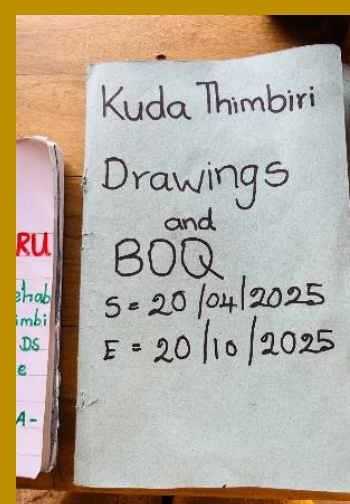 Kuda Thimbiri
Drawings
and
BOQ
S = 20/04/2025
E = 20/10/2025
RU
ehab
imbi
DS
e
A-